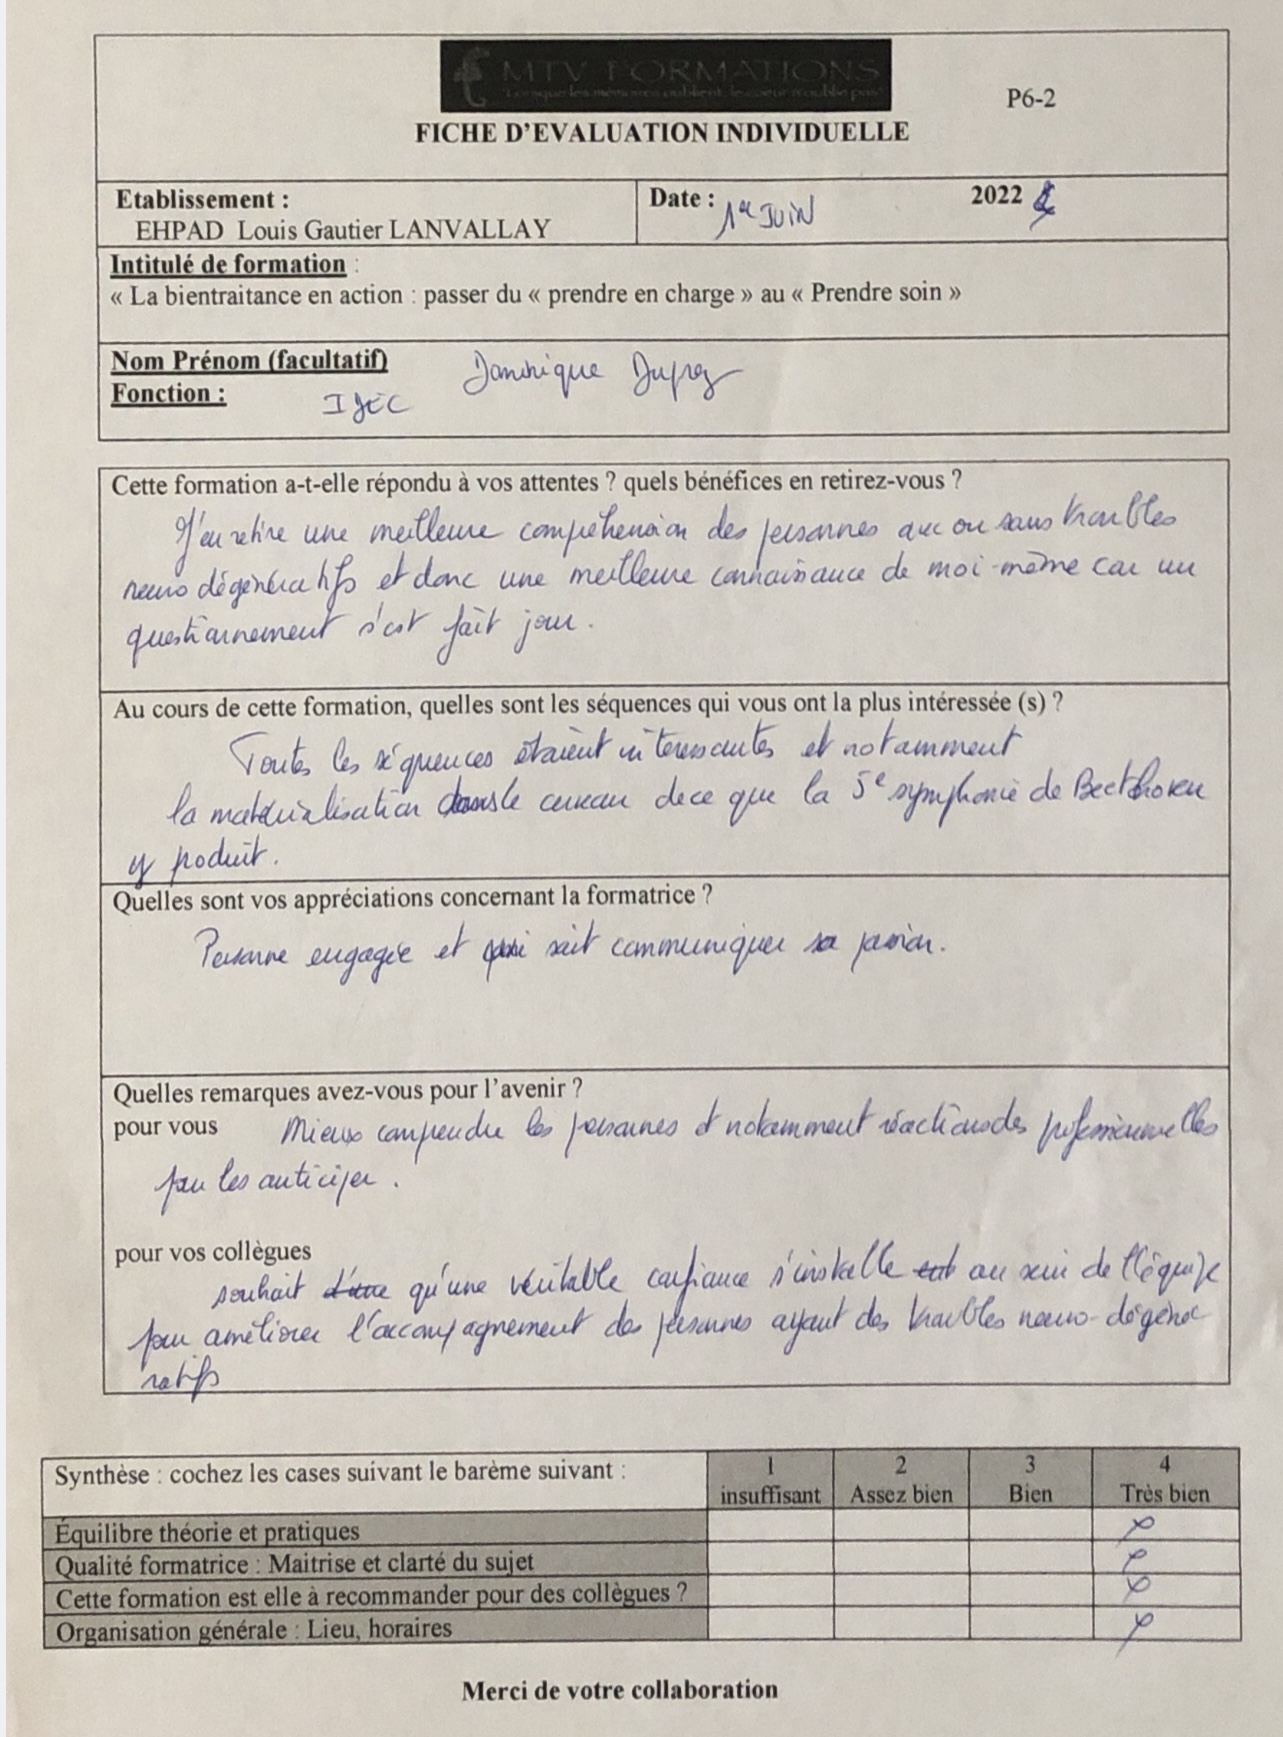 MTV FORMATIONS
"Lorsque les mémoires oublient, le coeur n'oublie pas"
P6-2
FICHE D'EVALUATION INDIVIDUELLE
Etablissement :
EHPAD Louis Gautier LANVALLAY
Date : 1er JUIN 2022
Intitulé de formation :
« La bientraitance en action : passer du « prendre en charge » au « Prendre soin »
Nom Prénom (facultatif) Dominique Duprez
Fonction : IDEC
Cette formation a-t-elle répondu à vos attentes ? quels bénéfices en retirez-vous ?
J'en retire une meilleure compréhension des personnes avec ou sans troubles
neuro dégénératifs et donc une meilleure connaissance de moi-même car un
questionnement s'est fait jour.
Au cours de cette formation, quelles sont les séquences qui vous ont la plus intéressée (s) ?
Toutes les séquences étaient interessantes et notamment
la matérialisation dans le cerveau de ce que la 5e symphonie de Beethoven
y produit.
Quelles sont vos appréciations concernant la formatrice ?
Personne engagée et qui sait communiquer sa passion.
Quelles remarques avez-vous pour l'avenir ?
pour vous Mieux comprendre les personnes et notamment réactions des professionnelles
pour les anticiper.
pour vos collègues
souhait d'une qu'une véritable confiance s'installe au sein de l'équipe
pour améliorer l'accompagnement des personnes ayant des troubles neuro-dégéné
ratifs
Synthèse : cochez les cases suivant le barème suivant :
1 2 3 4
insuffisant Assez bien Bien Très bien
Équilibre théorie et pratiques
Qualité formatrice : Maitrise et clarté du sujet
Cette formation est elle à recommander pour des collègues ?
Organisation générale : Lieu, horaires
Merci de votre collaboration